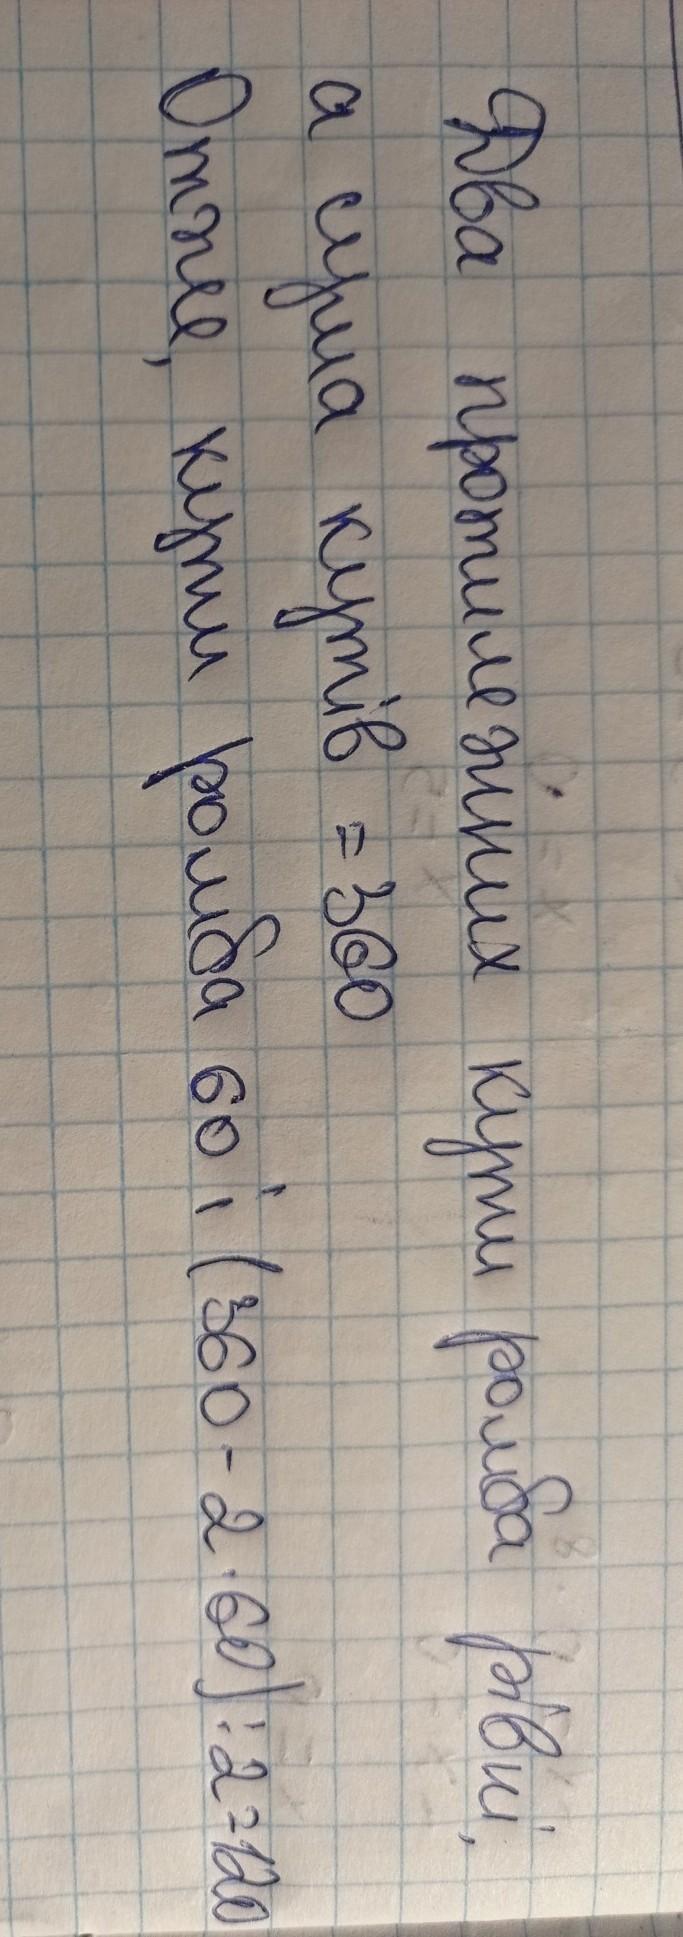 Два протилежних кути ромба рівні,
а сума кутів = 360
Отже, кути ромба 60 і (360 - 2 · 60) : 2 = 120